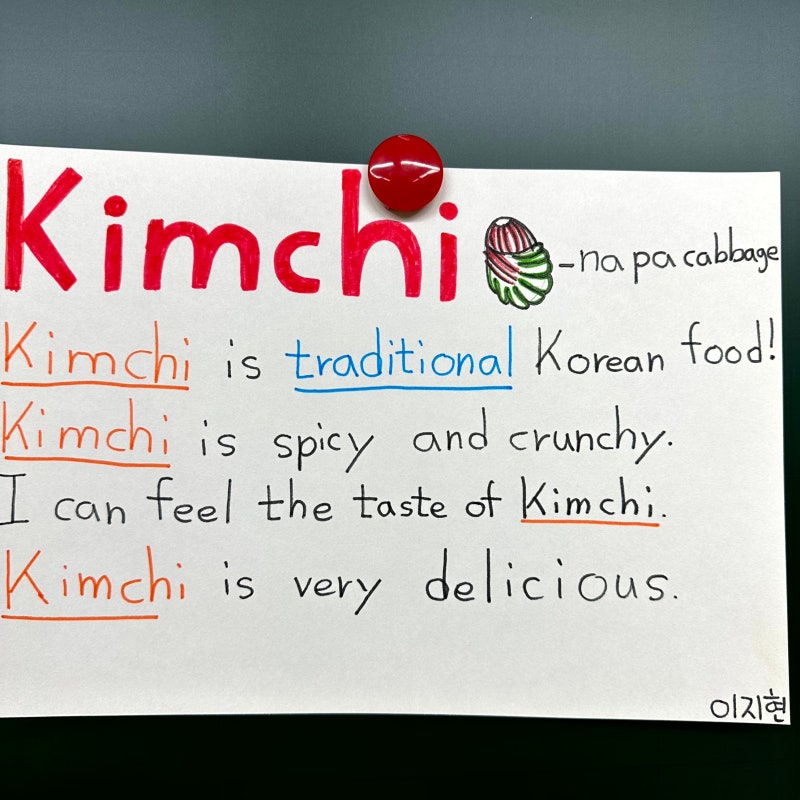 Kimchi -napa cabbage
Kimchi is traditional Korean food!
Kimchi is spicy and crunchy.
I can feel the taste of Kimchi.
Kimchi is very delicious.
이지현